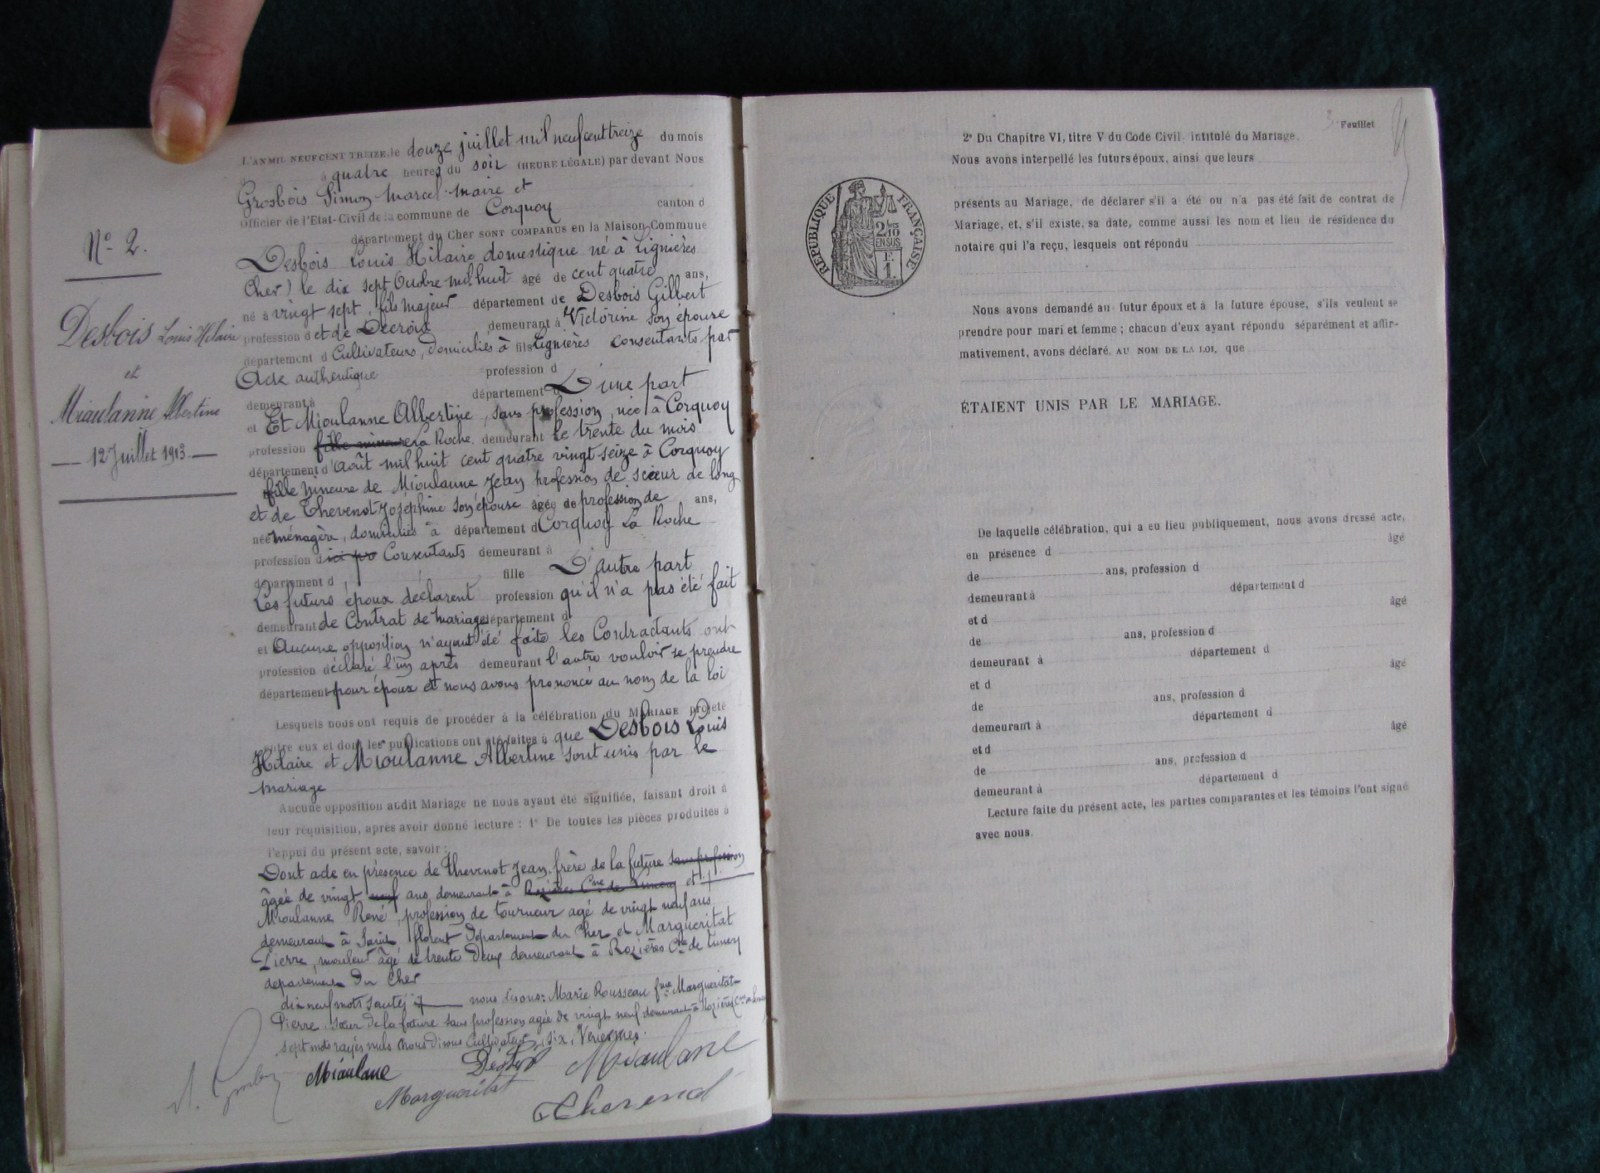 N° 2.
Desbois Louis Hilaire
et
Mioulanne Albertine
12 Juillet 1913
L'AN MIL NEUFCENT TREIZE, le douze juillet mil neuf cent treize du mois
à quatre heures du soir (HEURE LÉGALE) par devant Nous
Grosbois Simon Marcel Maire et
officier de l'Etat-Civil de la commune de Corquoy canton d
département du Cher SONT COMPARUS en la Maison Commune
Desbois Louis Hilaire domestique né à Lignières
Cher) le dix sept Octobre mil huit âgé de cent quatre ans,
né à vingt sept, fils majeur département de Desbois Gilbert
profession d et de Decroix demeurant à Victorine son épouse
département d Cultivateurs, domiciliés à fils Lignières consentants par
Acte authentique profession d
demeurant à département d D'une part
et Et Mioulanne Albertine, sans profession, née à Corquoy
profession fille mineure La Roche, demeurant le trente du mois
département d'Août mil huit cent quatre vingt seize à Corquoy
fille mineure de Mioulanne Jean profession de scieur de long
et de Thevenot Joséphine son épouse âgée de profession de ans,
née ménagère, domiciliés à département d Corquoy La Roche
profession d Consentants demeurant à
département d fille D'autre part
Les futurs époux déclarent profession qu'il n'a pas été fait
demeurant de Contrat de mariage département d
et Aucune opposition n'ayant été faite les Contractants ont
profession déclaré l'un après demeurant l'autre vouloir se prendre
département pour époux et nous avons prononcé au nom de la loi
Lesquels nous ont requis de procéder à la célébration du MARIAGE projeté
entre eux et dont les publications ont été faites à que Desbois Louis
Hilaire et Mioulanne Albertine sont unis par le
mariage
Aucune opposition audit Mariage ne nous ayant été signifiée, faisant droit à
leur réquisition, après avoir donné lecture : 1° De toutes les pièces produites à
l'appui du présent acte, savoir :
Dont acte en présence de Thevenot Jean, frère de la future sans profession
âgé de vingt neuf ans demeurant à Rozières Cne de Lunery et
Mioulanne René, profession de tourneur agé de vingt neuf ans
demeurant à Saint florent Département du Cher et Margueritat
Pierre, mouleur âgé de trente Deux demeurant à Rozières Cne de Lunery
département Du Cher
dix neuf mots sautés nous disons: Marie Rousseau fme Margueritat
Pierre sœur de la future sans profession agée de vingt neuf demeurant à Rozières Cne de
sept mots rayés nuls nous Disons Cultivateur, six,
Mioulane Mioulane
Margueritat
Feuillet
2° Du Chapitre VI, titre V du Code Civil intitulé du Mariage.
Nous avons interpellé les futurs époux, ainsi que leurs
présents au Mariage, de déclarer s'il a été ou n'a pas été fait de contrat de
Mariage, et, s'il existe, sa date, comme aussi les nom et lieu de résidence du
notaire qui l'a reçu, lesquels ont répondu
RÉPUBLIQUE FRANÇAISE
2/10 EN SUS
1 F.
Nous avons demandé au futur époux et à la future épouse, s'ils veulent se
prendre pour mari et femme ; chacun d'eux ayant répondu séparément et affir-
mativement, avons déclaré, AU NOM DE LA LOI, que
ÉTAIENT UNIS PAR LE MARIAGE.
De laquelle célébration, qui a eu lieu publiquement, nous avons dressé acte,
en présence d âgé
de ans, profession d
demeurant à département d
et d âgé
de ans, profession d
demeurant à département d
et d âgé
de ans, profession d
demeurant à département d
et d âgé
de ans, profession d
demeurant à département d
Lecture faite du présent acte, les parties comparantes et les témoins l'ont signé
avec nous.